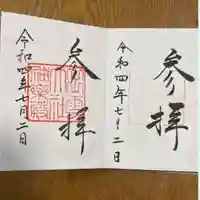 参拝
令和四年七月二日
参拝
令和四年七月二日